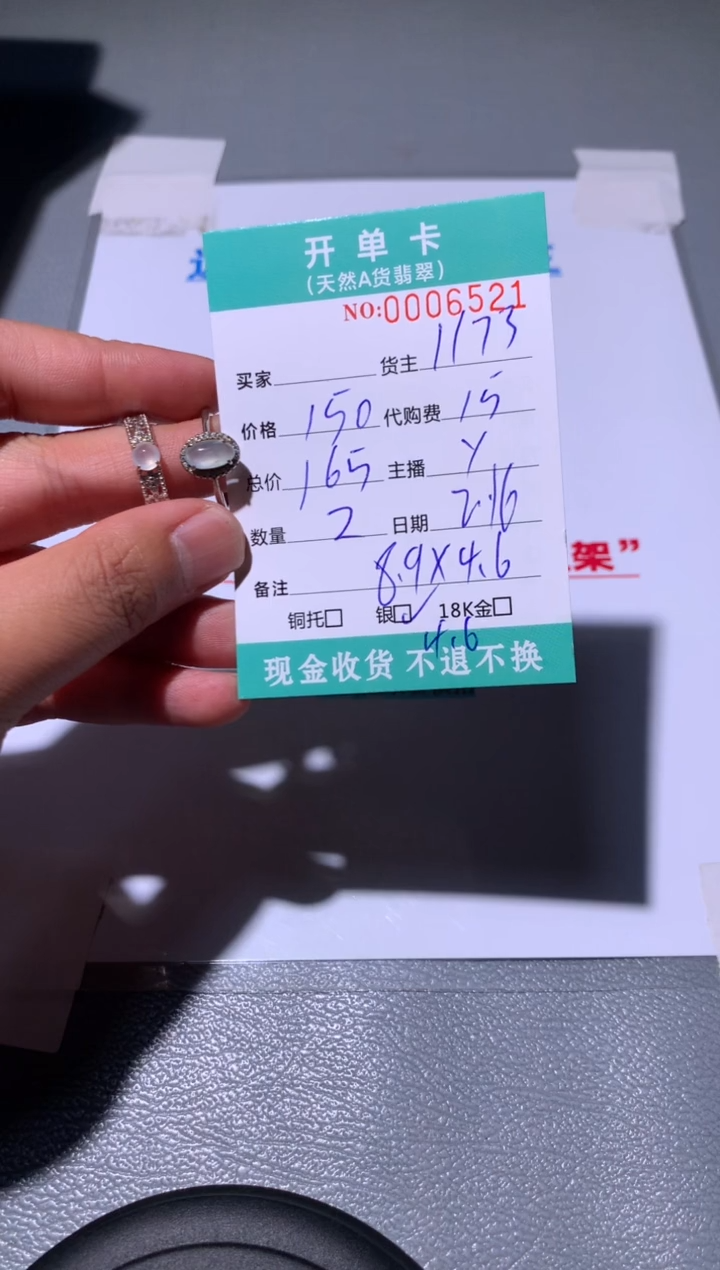 开单卡
(天然A货翡翠)
NO:0006521
买家 货主 1173
价格 150 代购费 15
总价 165 主播 Y
数量 2 日期 2.16
备注 8.9X4.6
铜托□ 银□✓ 18K金□
4.6
现金收货 不退不换
架”